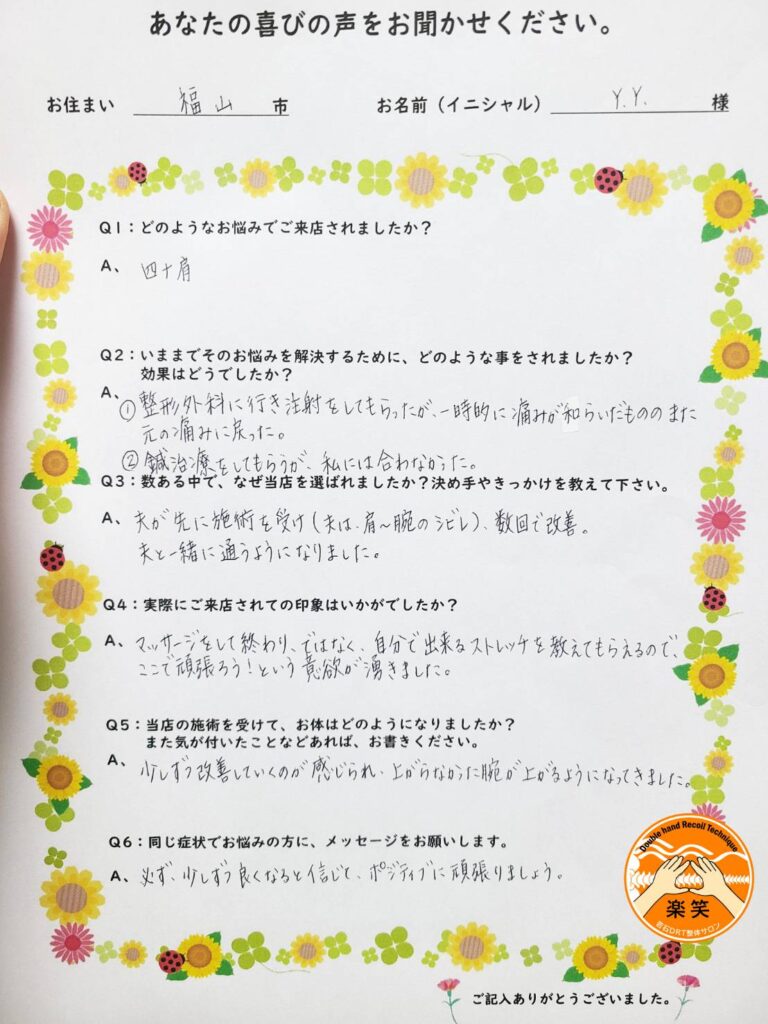 あなたの喜びの声をお聞かせください。
お住まい 福山 市 お名前（イニシャル） Y.Y. 様
Q1：どのようなお悩みでご来店されましたか？
A、 四十肩
Q2：いままでそのお悩みを解決するために、どのような事をされましたか？
効果はどうでしたか？
A、 ① 整形外科に行き注射をしてもらったが、一時的に痛みが和らいだもののまた
元の痛みに戻った。
② 鍼治療をしてもらうが、私には合わなかった。
Q3：数ある中で、なぜ当店を選ばれましたか？決め手やきっかけを教えて下さい。
A、 夫が先に施術を受け（夫は、肩～腕のシビレ）、数回で改善。
夫と一緒に通うようになりました。
Q4：実際にご来店されての印象はいかがでしたか？
A、 マッサージをして終わり、ではなく、自分で出来るストレッチを教えてもらえるので、
ここで頑張ろう！という意欲が湧きました。
Q5：当店の施術を受けて、お体はどのようになりましたか？
また気が付いたことなどあれば、お書きください。
A、 少しずつ改善していくのが感じられ、上がらなかった腕が上がるようになってきました。
Q6：同じ症状でお悩みの方に、メッセージをお願いします。
A、 必ず、少しずつ良くなると信じて、ポジティブに頑張りましょう。
Double hand Recoil Technique
楽笑
杏石DRT整体サロン
ご記入ありがとうございました。